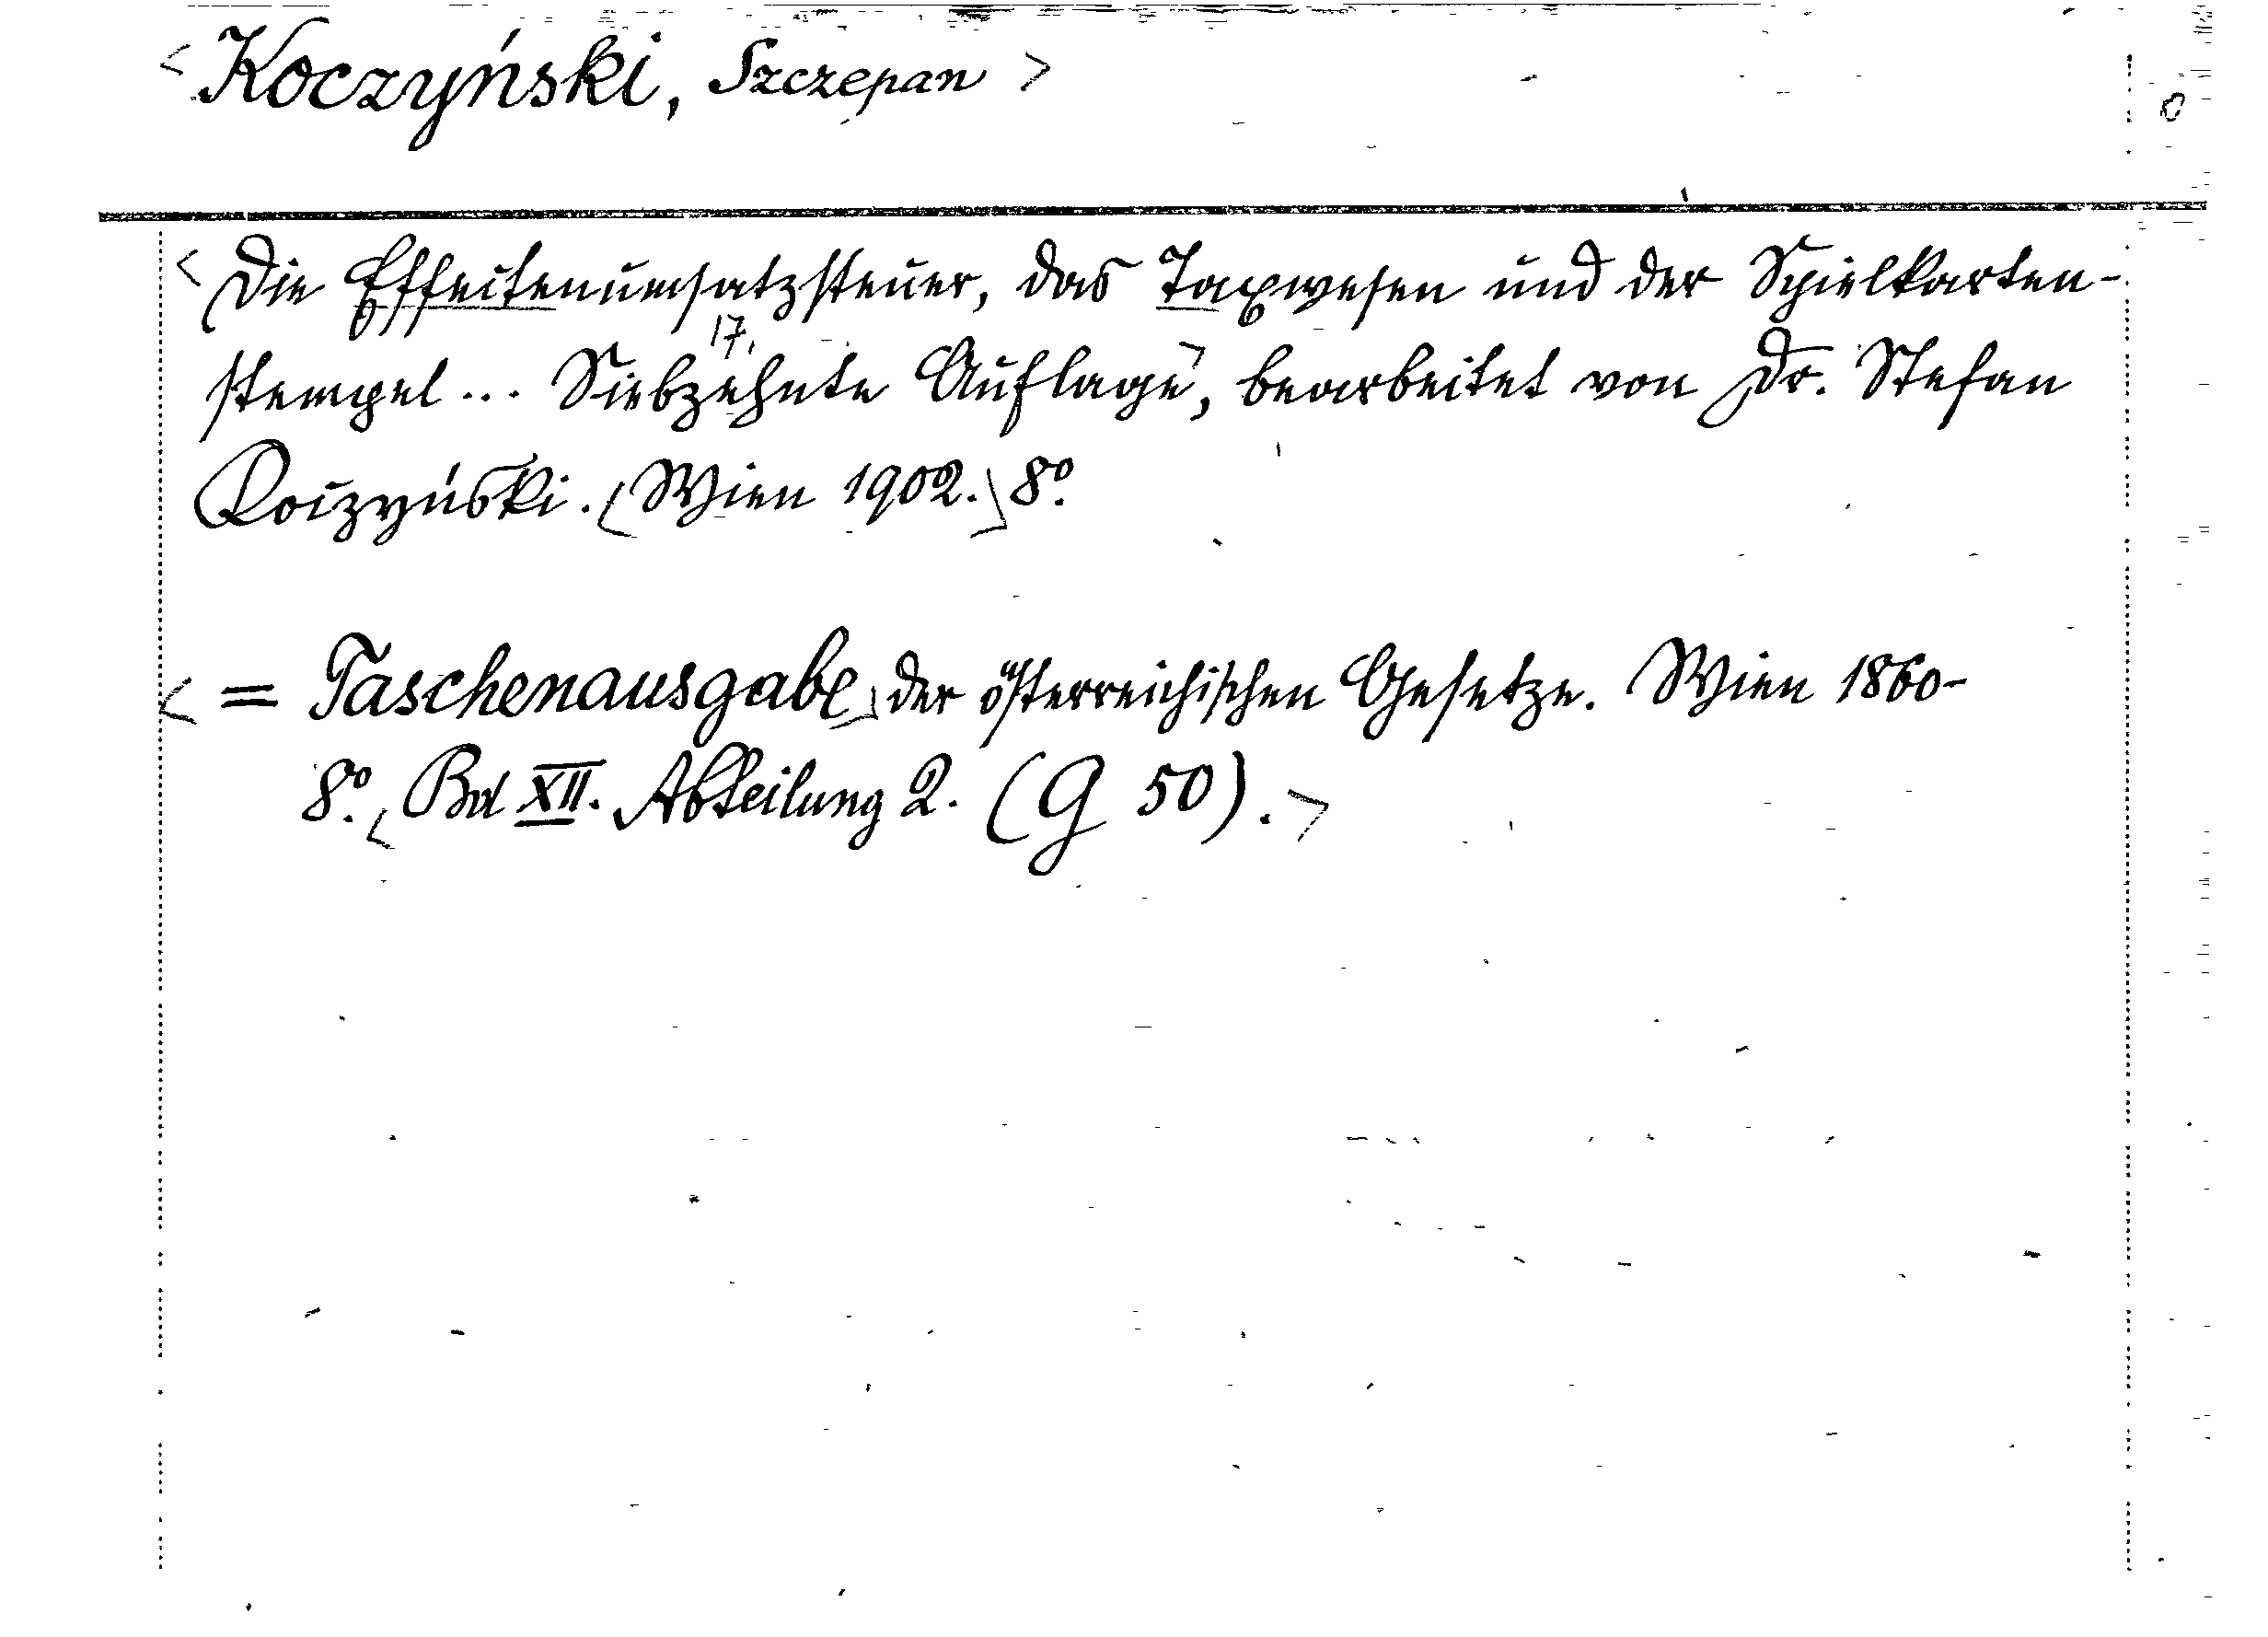 < Koczyński, Szczepan >
< Die Effectenumsatzsteuer, das Taxwesen und der Spielkarten-
17.
stempel ... Siebzehnte Auflage >, bearbeitet von Dr. Stefan
Koczyński. < Wien 1902. > 8º.
< = Taschenausgabe > der österreichischen Gesetze. Wien 1860-
8º. < Bd XII. Abteilung 2. (G 50). >